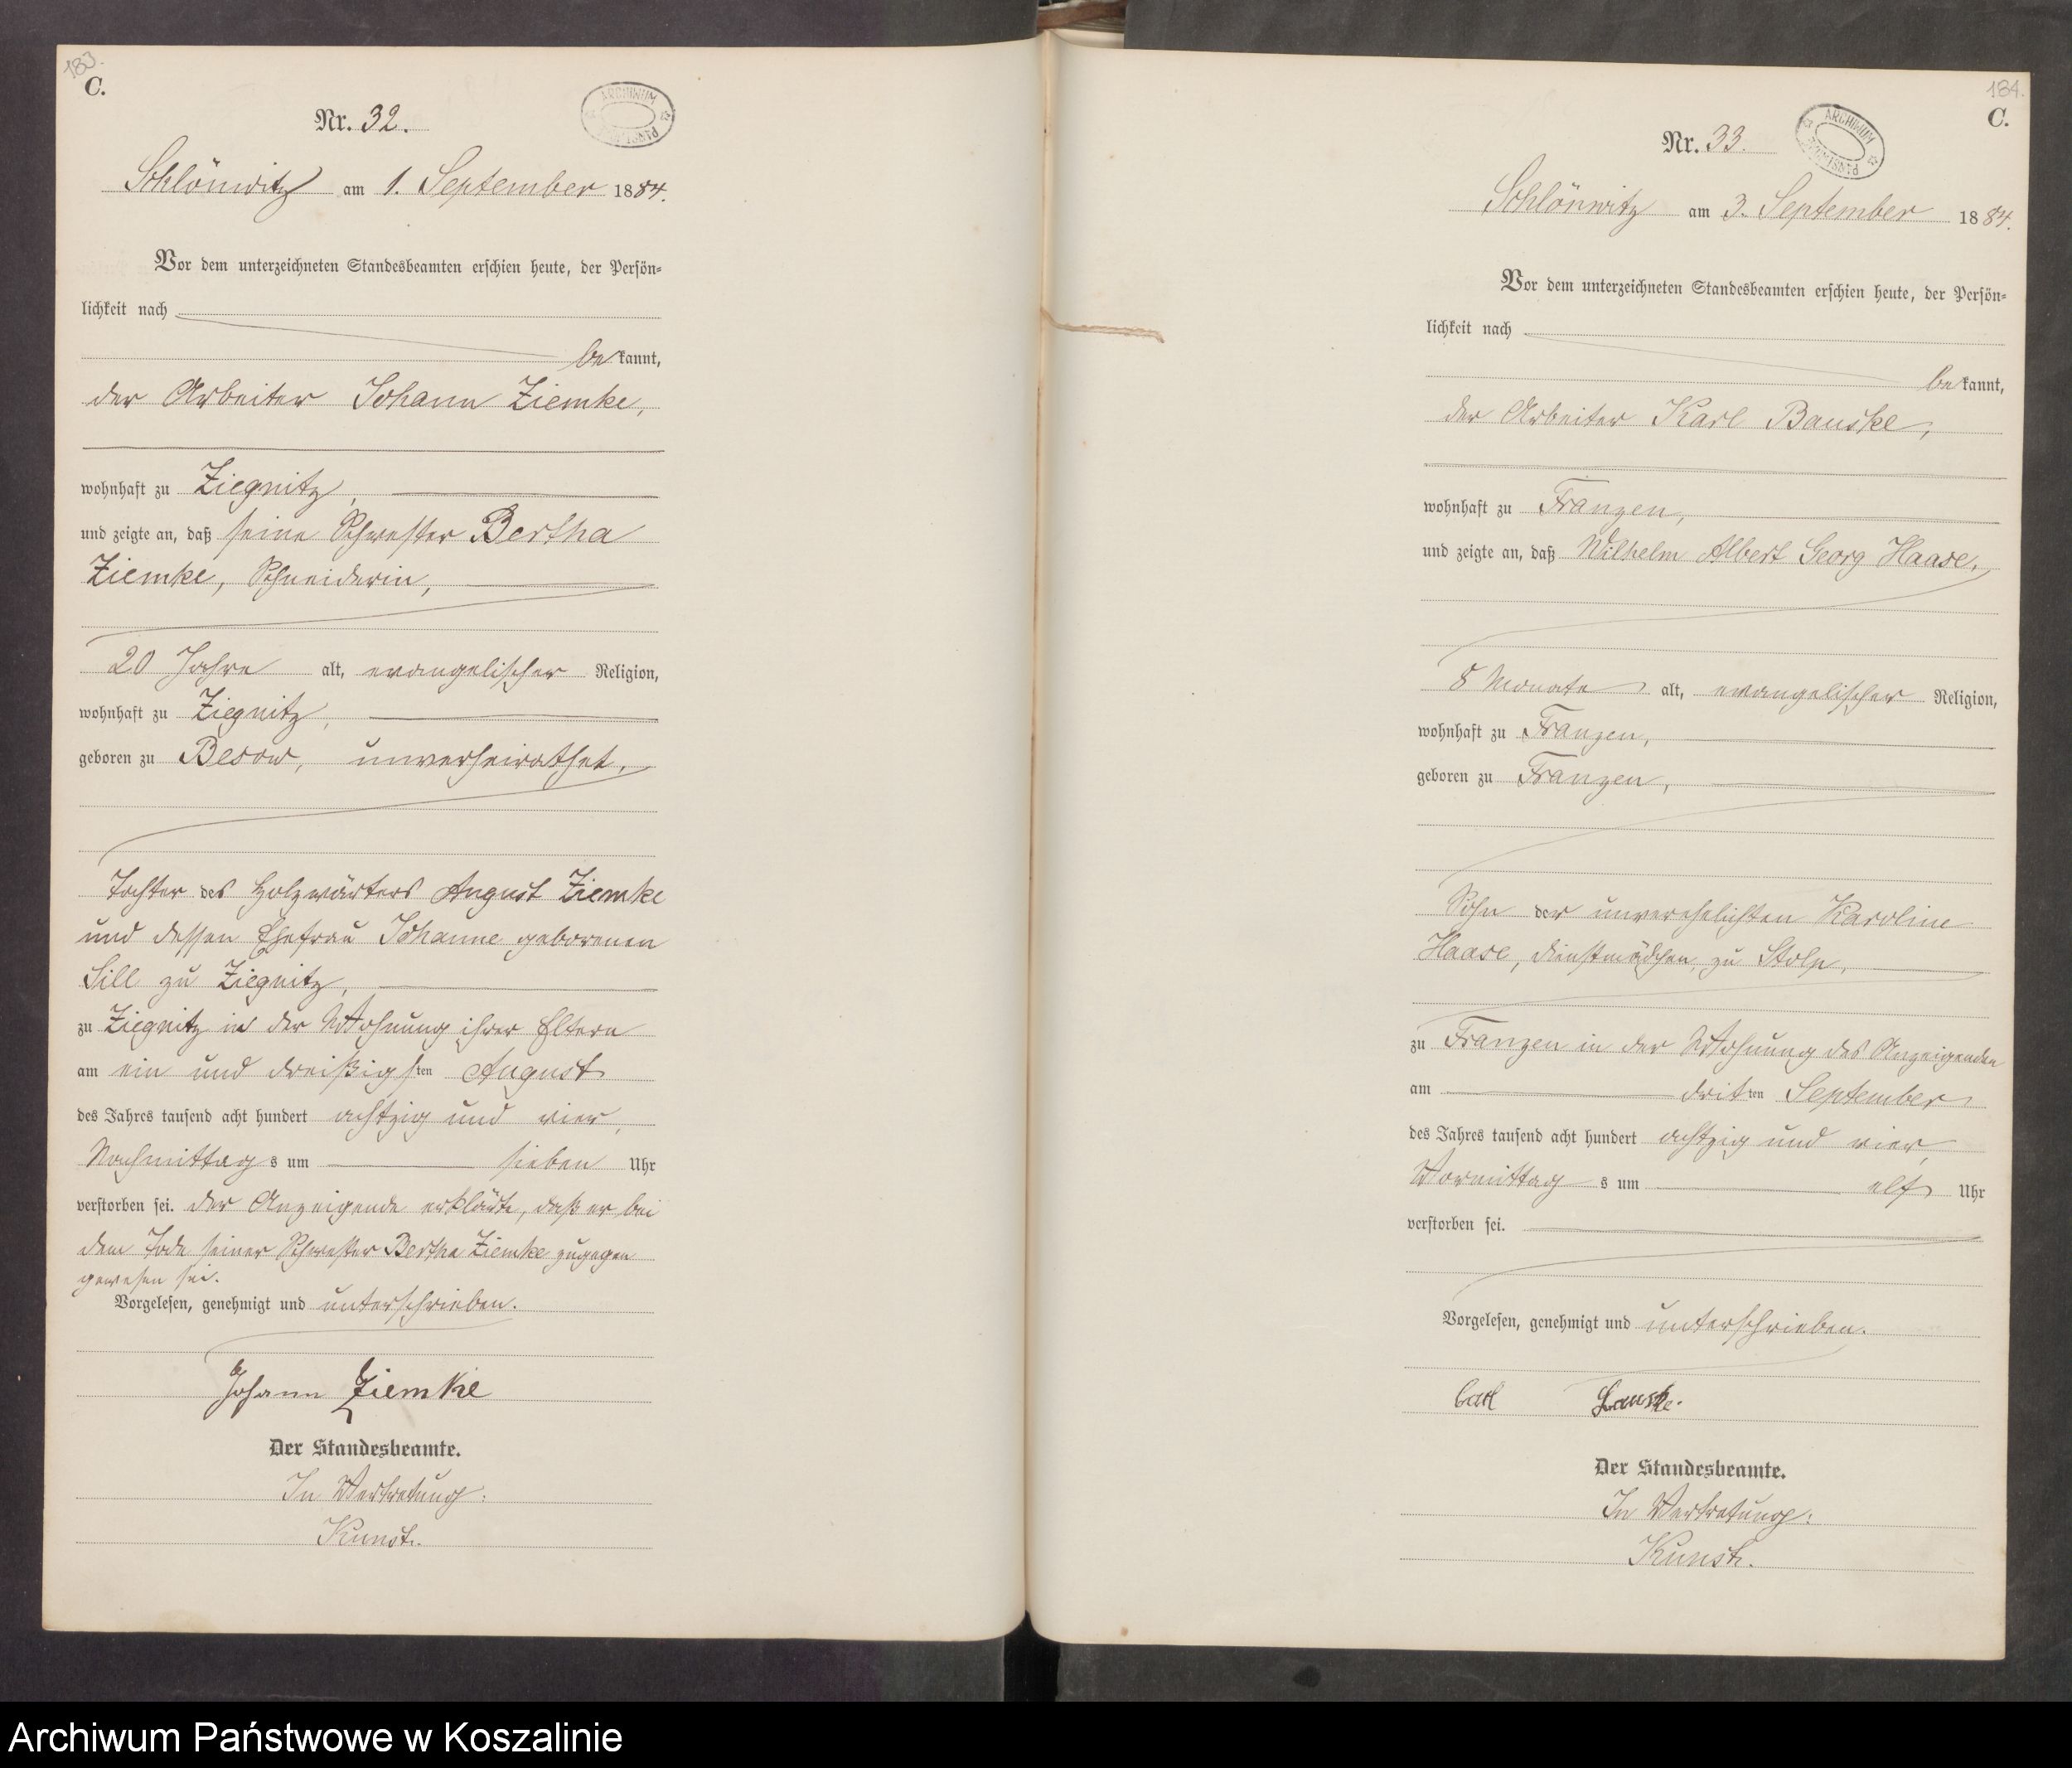 183.
C.
ARCHIWUM
PAŃSTWOWE
Nr. 32.
Schlönwitz am 1. September 1884.
Vor dem unterzeichneten Standesbeamten erschien heute, der Persön-
lichkeit nach
bekannt,
der Arbeiter Johann Ziemke,
wohnhaft zu Ziegnitz,
und zeigte an, daß seine Schwester Bertha
Ziemke, Schneiderin,
20 Jahre alt, evangelischer Religion,
wohnhaft zu Ziegnitz,
geboren zu Besow, unverheirathet,
Tochter des Holzwärters August Ziemke
und dessen Ehefrau Johanne geborenen
Sill zu Ziegnitz,
zu Ziegnitz in der Wohnung ihrer Eltern
am ein und dreißigsten August
des Jahres tausend acht hundert achtzig und vier,
Nachmittags um sieben Uhr
verstorben sei. Der Anzeigende erklärte, daß er bei
dem Tode seiner Schwester Bertha Ziemke zugegen
gewesen sei.
Vorgelesen, genehmigt und unterschrieben.
Johann Ziemke
Der Standesbeamte.
In Vertretung:
Kunst.
184.
C.
ARCHIWUM
PAŃSTWOWE
Nr. 33.
Schlönwitz am 3. September 1884.
Vor dem unterzeichneten Standesbeamten erschien heute, der Persön-
lichkeit nach
bekannt,
der Arbeiter Karl Bauske,
wohnhaft zu Franzen,
und zeigte an, daß Wilhelm Albert Georg Haase,
8 Monate alt, evangelischer Religion,
wohnhaft zu Franzen,
geboren zu Franzen,
Sohn der unverehelichten Karoline
Haase, Dienstmädchen, zu Stolp,
zu Franzen in der Wohnung des Anzeigenden
am dritten September
des Jahres tausend acht hundert achtzig und vier,
Vormittags um elf Uhr
verstorben sei.
Vorgelesen, genehmigt und unterschrieben.
Carl Bauske.
Der Standesbeamte.
In Vertretung:
Kunst.
Archiwum Państwowe w Koszalinie